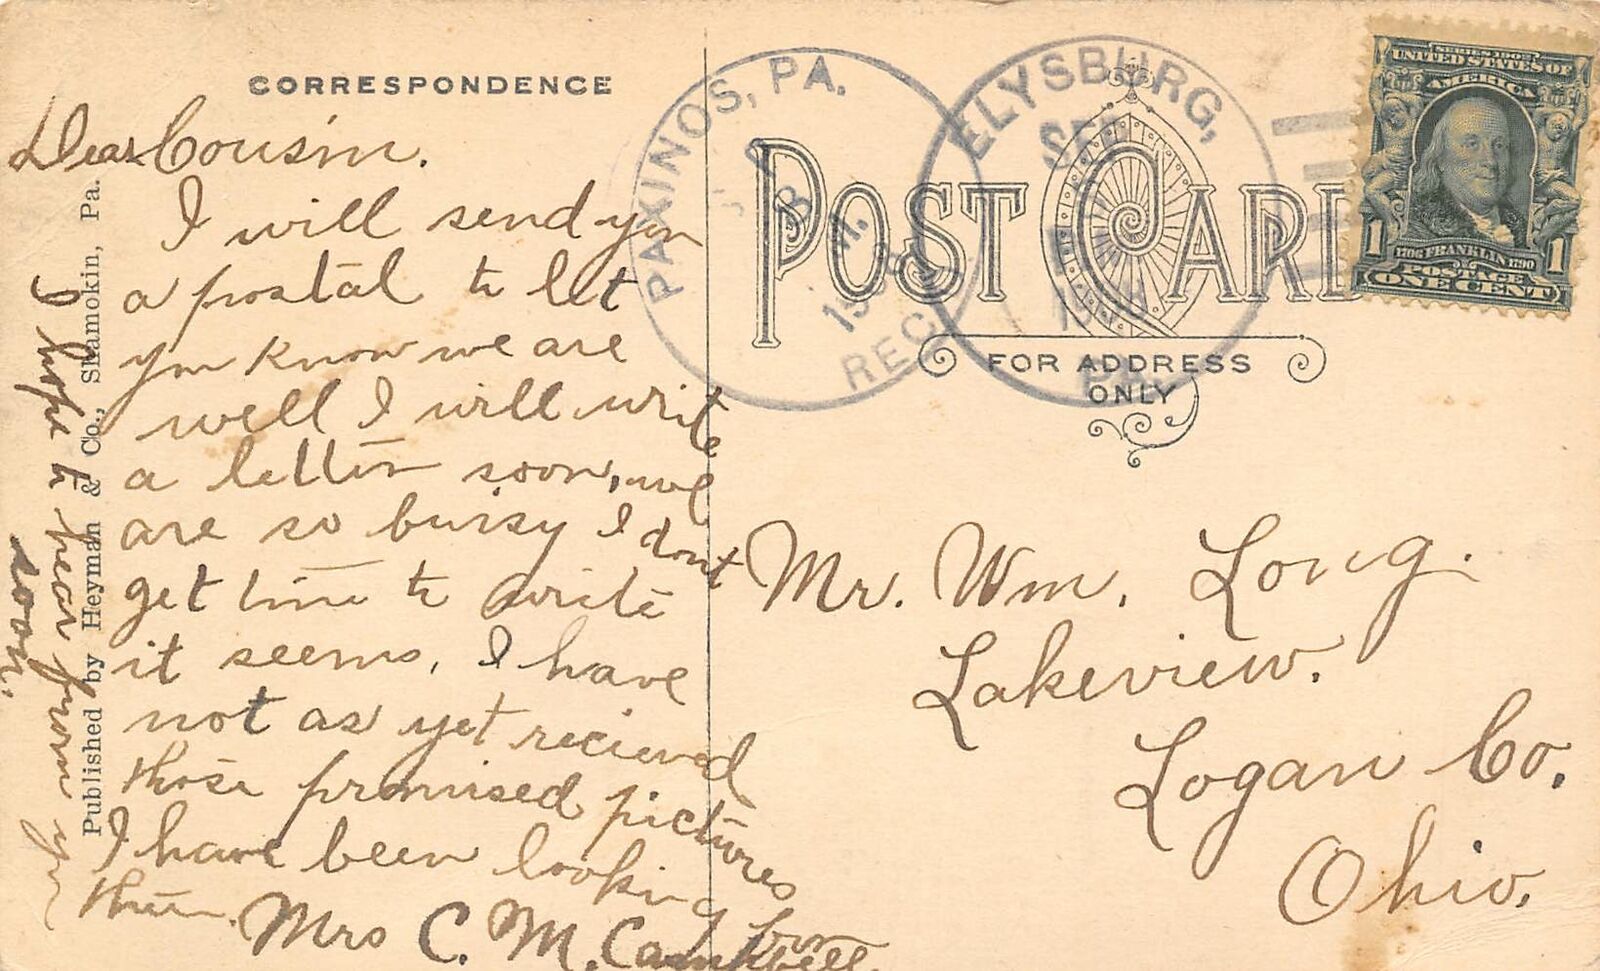 CORRESPONDENCE
Dear Cousin.
I will send you
a postal to let
you know we are
well I will write
a letter soon, we
are so buisy I dont
get time to write
it seems, I have
not as yet recieved
those promised pictures
I have been looking for
them.
Mrs C. M. Campbell.
I hope to hear from you
soon.
Published by Heyman & Co., Shamokin, Pa.
PAXINOS, PA.
REC'D.
ELYSBURG,
SEP
1908
PA.
POST CARD
FOR ADDRESS
ONLY
SERIES 1902
UNITED STATES OF
AMERICA
1706 FRANKLIN 1790
1 POSTAGE 1
ONE CENT
Mr. Wm. Long.
Lakeview.
Logan Co.
Ohio.